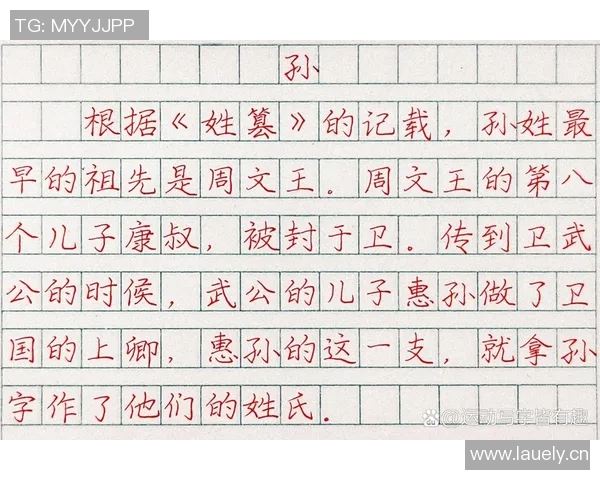 TG: MYYJJPP
孙
根据《姓篡》的记载，孙姓最
早的祖先是周文王．周文王的第八
个儿子康叔，被封于卫。传到卫武
公的时候，武公的儿子惠孙做了卫
国的上卿，惠孙的这一支，就拿孙
字作了他们的姓氏．
@运动与车皆有趣
www.lauely.cn